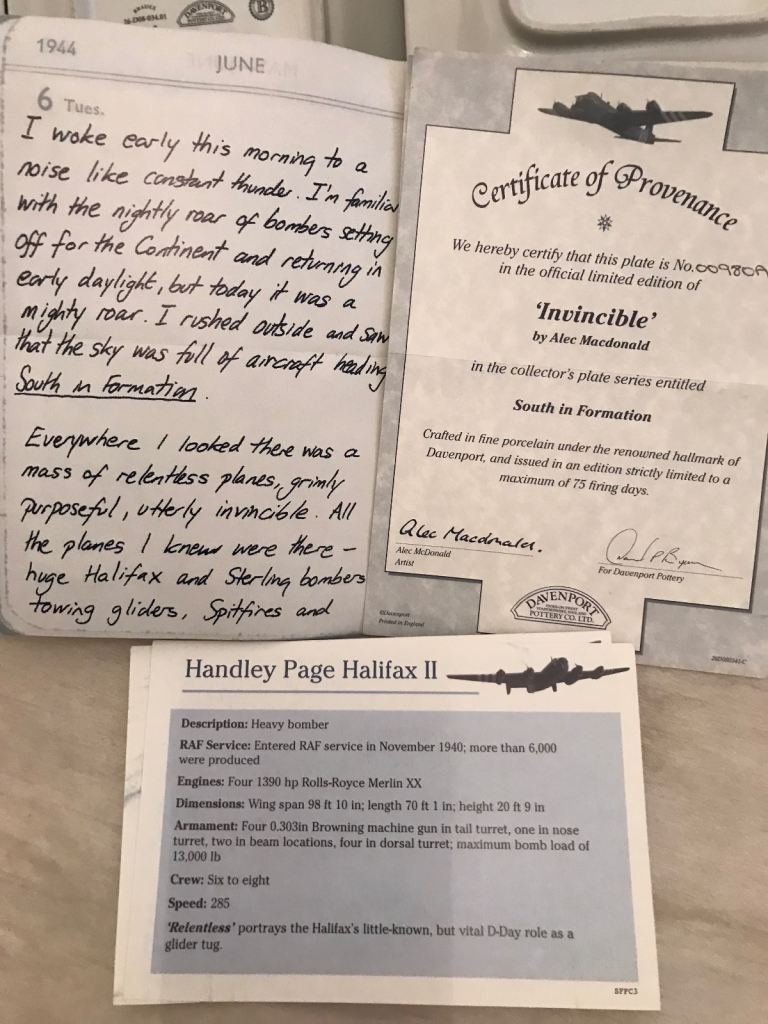 26-D08-034.01
DAVENPORT
B
1944
JUNE
6 Tues.
I woke early this morning to a
noise like constant thunder. I'm familiar
with the nightly roar of bombers setting
off for the Continent and returning in
early daylight, but today it was a
mighty roar. I rushed outside and saw
that the sky was full of aircraft heading
South in Formation.
Everywhere I looked there was a
mass of relentless planes, grimly
purposeful, utterly invincible. All
the planes I knew were there –
huge Halifax and Sterling bombers
towing gliders, Spitfires and
Certificate of Provenance
We hereby certify that this plate is No. 009809A
in the official limited edition of
'Invincible'
by Alec Macdonald
in the collector's plate series entitled
South in Formation
Crafted in fine porcelain under the renowned hallmark of
Davenport, and issued in an edition strictly limited to a
maximum of 75 firing days.
Alec Macdonald.
Alec McDonald
Artist
For Davenport Pottery
DAVENPORT
POTTERY CO. LTD.
©Davenport
Printed in England
Handley Page Halifax II
Description: Heavy bomber
RAF Service: Entered RAF service in November 1940; more than 6,000
were produced
Engines: Four 1390 hp Rolls-Royce Merlin XX
Dimensions: Wing span 98 ft 10 in; length 70 ft 1 in; height 20 ft 9 in
Armament: Four 0.303in Browning machine gun in tail turret, one in nose
turret, two in beam locations, four in dorsal turret; maximum bomb load of
13,000 lb
Crew: Six to eight
Speed: 285
'Relentless' portrays the Halifax's little-known, but vital D-Day role as a
glider tug.
SFPC3